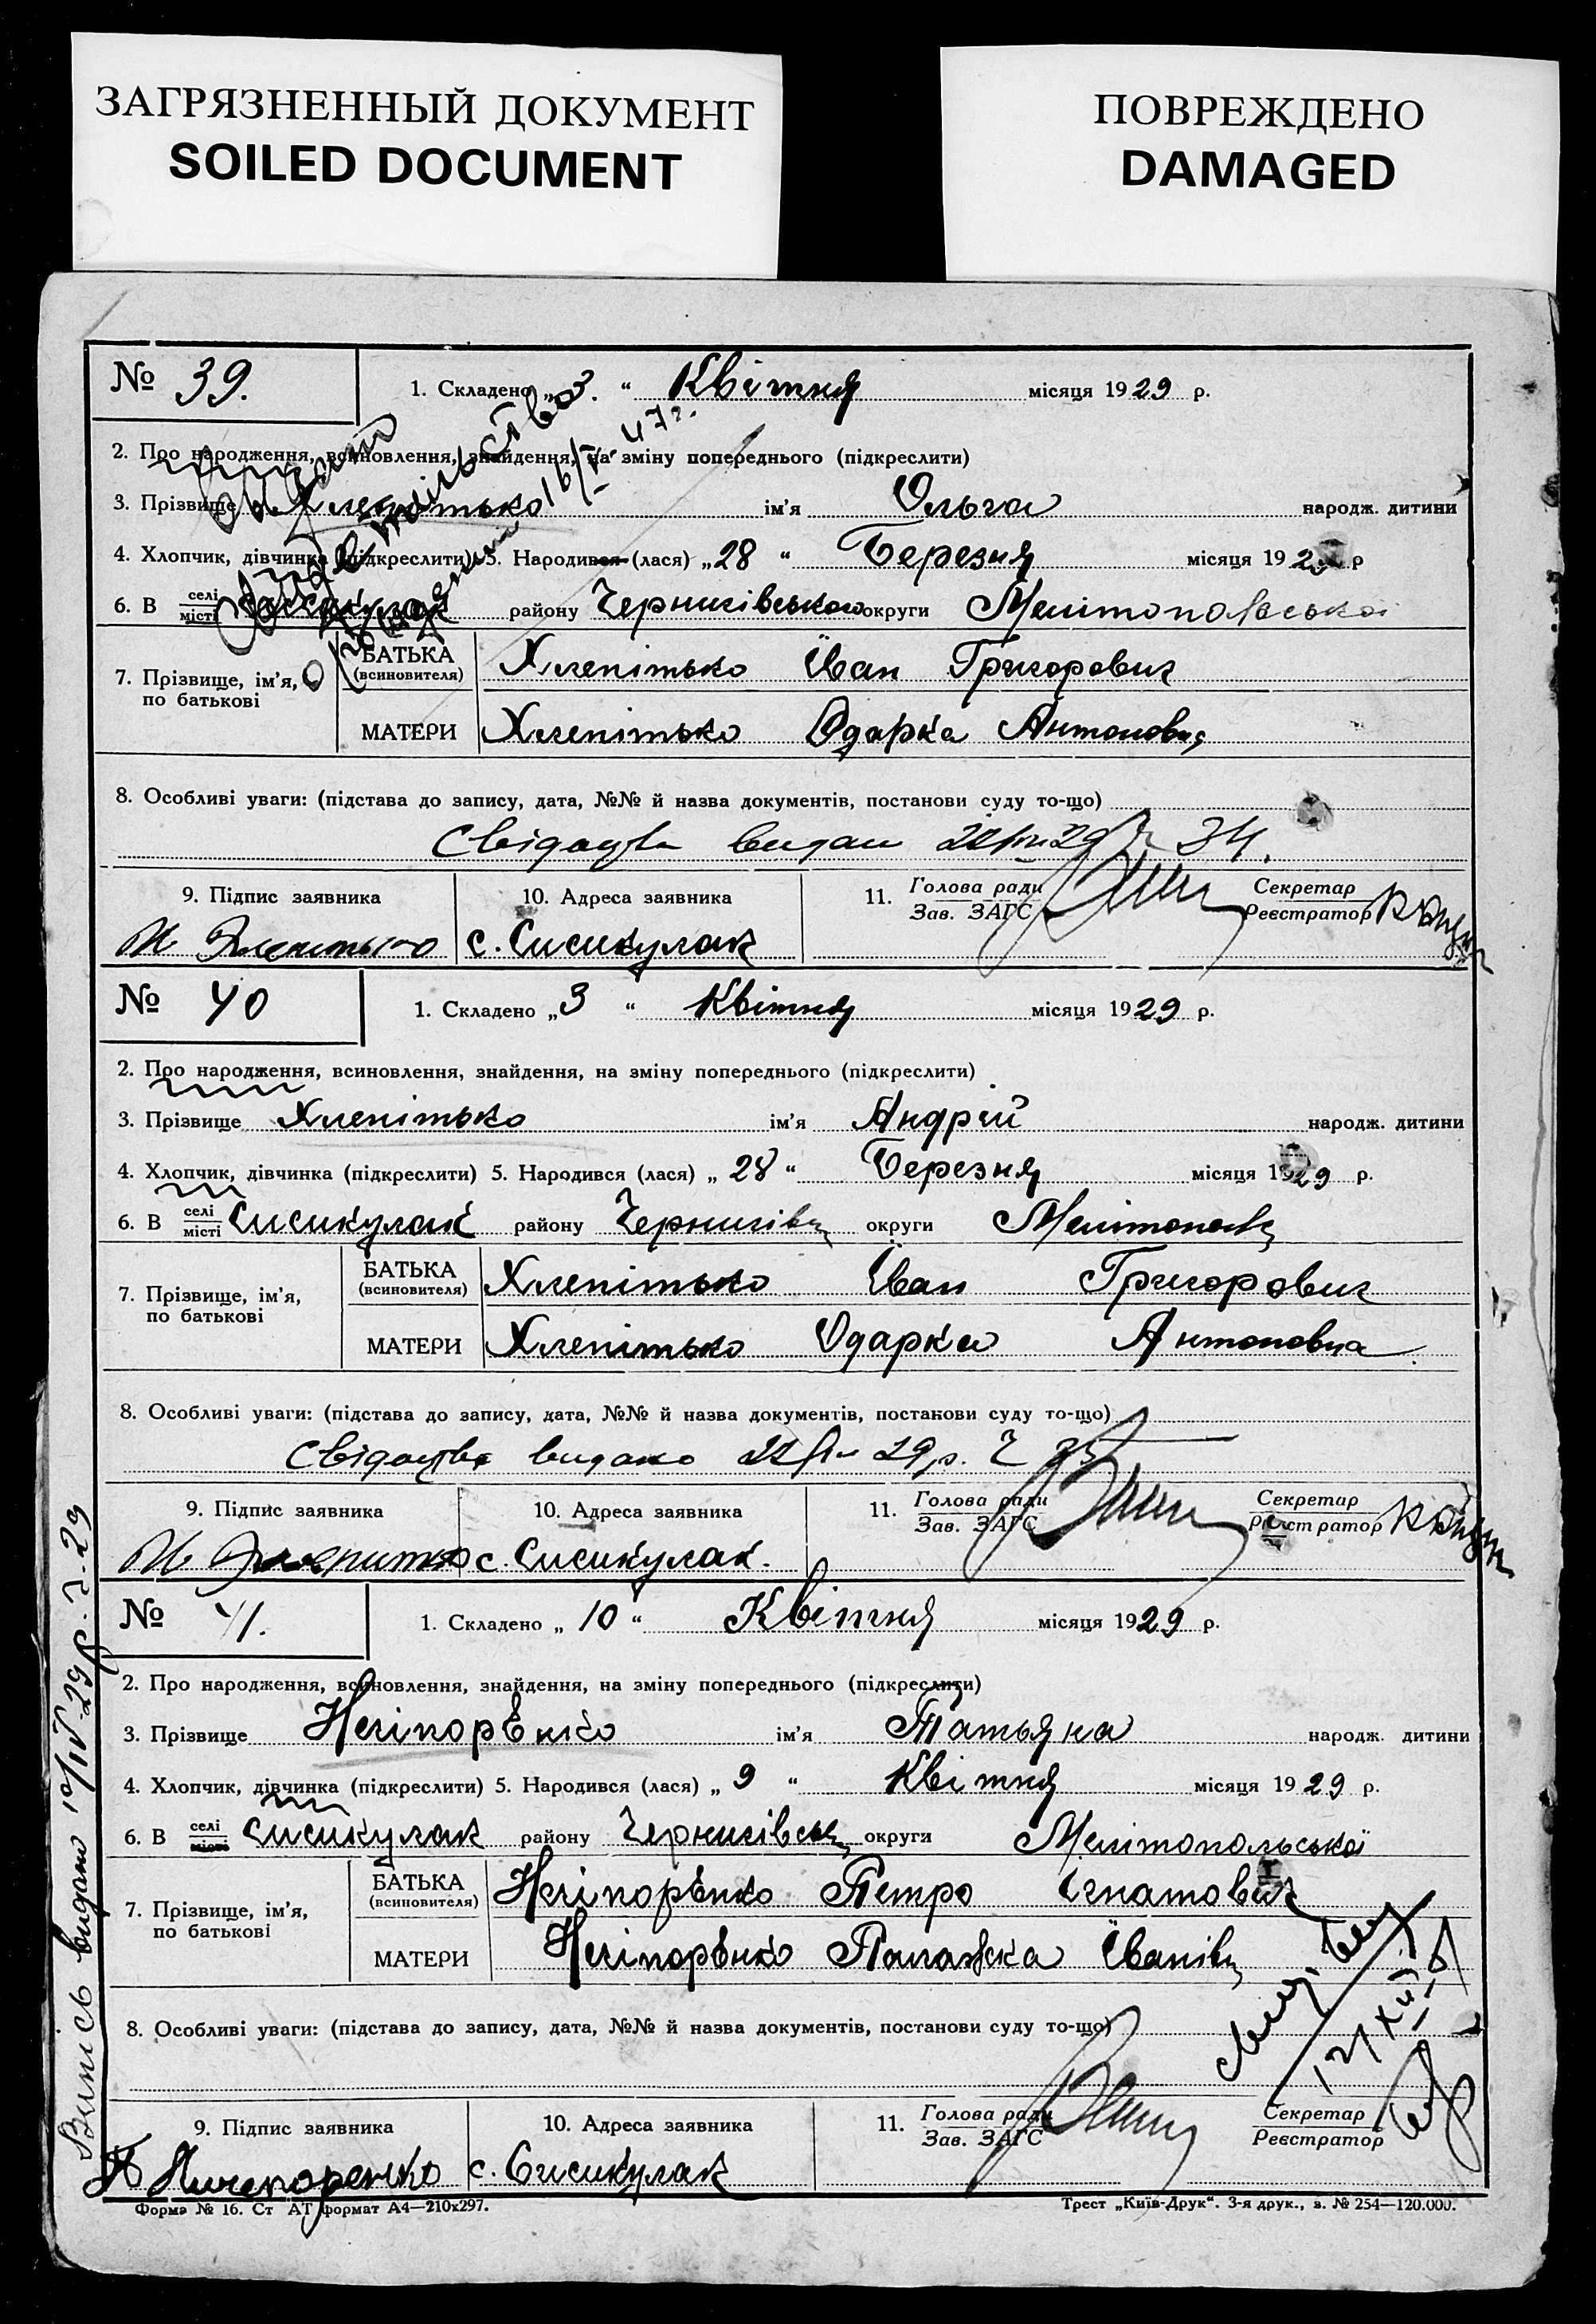 ЗАГРЯЗНЕННЫЙ ДОКУМЕНТ
SOILED DOCUMENT
ПОВРЕЖДЕНО
DAMAGED
№ 39.
1. Складено „3. “ Квітня місяця 1929 р.
2. Про народження, всиновлення, знайдення, на зміну попереднього (підкреслити)
3. Прізвище Хлепітько ім'я Ольга народж. дитини
4. Хлопчик, дівчинка (підкреслити) 5. Народився (лася) „28 “ Березня місяця 1929 р
6. В селі місті Сисикулак району Чернигівського округи Мелітопольської
7. Прізвище, ім'я, по батькові
БАТЬКА (всиновителя) Хлепітько Іван Григорович
МАТЕРИ Хлепітько Одарка Антоновна
8. Особливі уваги: (підстава до запису, дата, №№ й назва документів, постанови суду то-що)
34.
9. Підпис заявника
10. Адреса заявника
11. Голова ради Зав. ЗАГС
Секретар Реєстратор
с. Сисикулак
№ 40
1. Складено „3 “ Квітня місяця 1929 р.
2. Про народження, всиновлення, знайдення, на зміну попереднього (підкреслити)
3. Прізвище Хлепітько ім'я Андрій народж. дитини
4. Хлопчик, дівчинка (підкреслити) 5. Народився (лася) „ 28 “ Березня місяця 1929 р.
6. В селі місті Сисикулак району Чернигівс округи Мелітопольс
7. Прізвище, ім'я, по батькові
БАТЬКА (всиновителя) Хлепітько Іван Григорович
МАТЕРИ Хлепітько Одарка Антоновна
8. Особливі уваги: (підстава до запису, дата, №№ й назва документів, постанови суду то-що)
видано 29р.
9. Підпис заявника
10. Адреса заявника
11. Голова ради Зав. ЗАГС
Секретар Реєстратор
с. Сисикулак.
№ 41.
1. Складено „ 10 “ Квітня місяця 1929 р.
2. Про народження, всиновлення, знайдення, на зміну попереднього (підкреслити)
3. Прізвище Нечіпорѣнко ім'я Татьяна народж. дитини
4. Хлопчик, дівчинка (підкреслити) 5. Народився (лася) „ 9 “ Квітня місяця 1929 р.
6. В селі місті Сисикулак району Чернигівськ округи Мелітопольської
7. Прізвище, ім'я, по батькові
БАТЬКА (всиновителя) Нечіпорѣнко Петро Ігнатович
МАТЕРИ Нечіпорѣнко Палажка Іванівн
8. Особливі уваги: (підстава до запису, дата, №№ й назва документів, постанови суду то-що)
9. Підпис заявника
10. Адреса заявника
11. Голова ради Зав. ЗАГС
Секретар Реєстратор
с. Сисикулак
Форма № 16. Ст АТ формат А4—210х297.
Трест „Київ-Друк“. 3-я друк., з. № 254—120.000.
Випісь видано 10/IV-29р. 29